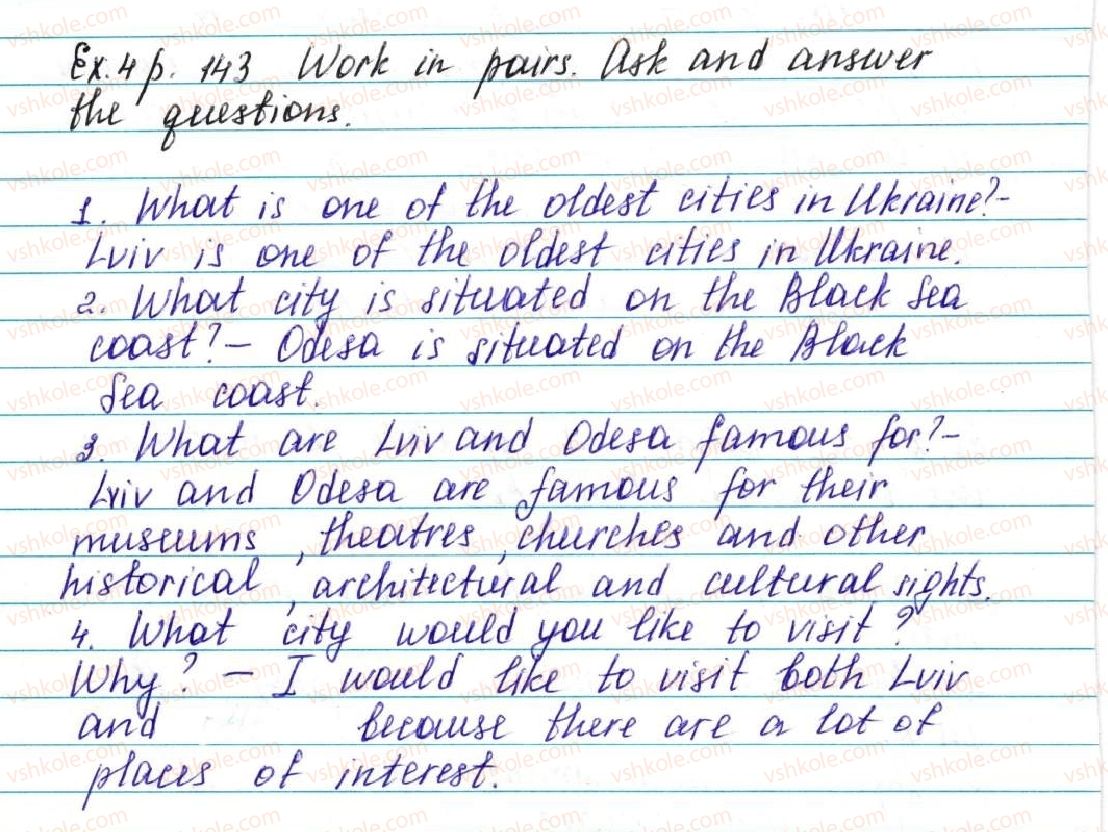 Ex. 4 p. 143 Work in pairs. Ask and answer
the questions.
1. What is one of the oldest cities in Ukraine?-
Lviv is one of the oldest cities in Ukraine.
2. What city is situated on the Black Sea
coast? - Odesa is situated on the Black
Sea coast.
3. What are Lviv and Odesa famous for? -
Lviv and Odesa are famous for their
museums, theatres, churches and other
historical, architectural and cultural sights.
4. What city would you like to visit?
Why? - I would like to visit both Lviv
and because there are a lot of
places of interest.
vshkole.com